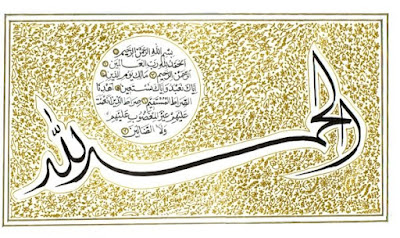 الحمد لله
بسم الله الرحمن الرحيم
الحمد لله رب العالمين
الرحمن الرحيم مالك يوم الدين
إياك نعبد وإياك نستعين اهدنا
الصراط المستقيم صراط الذين أنعمت
عليهم غير المغضوب عليهم
ولا الضالين